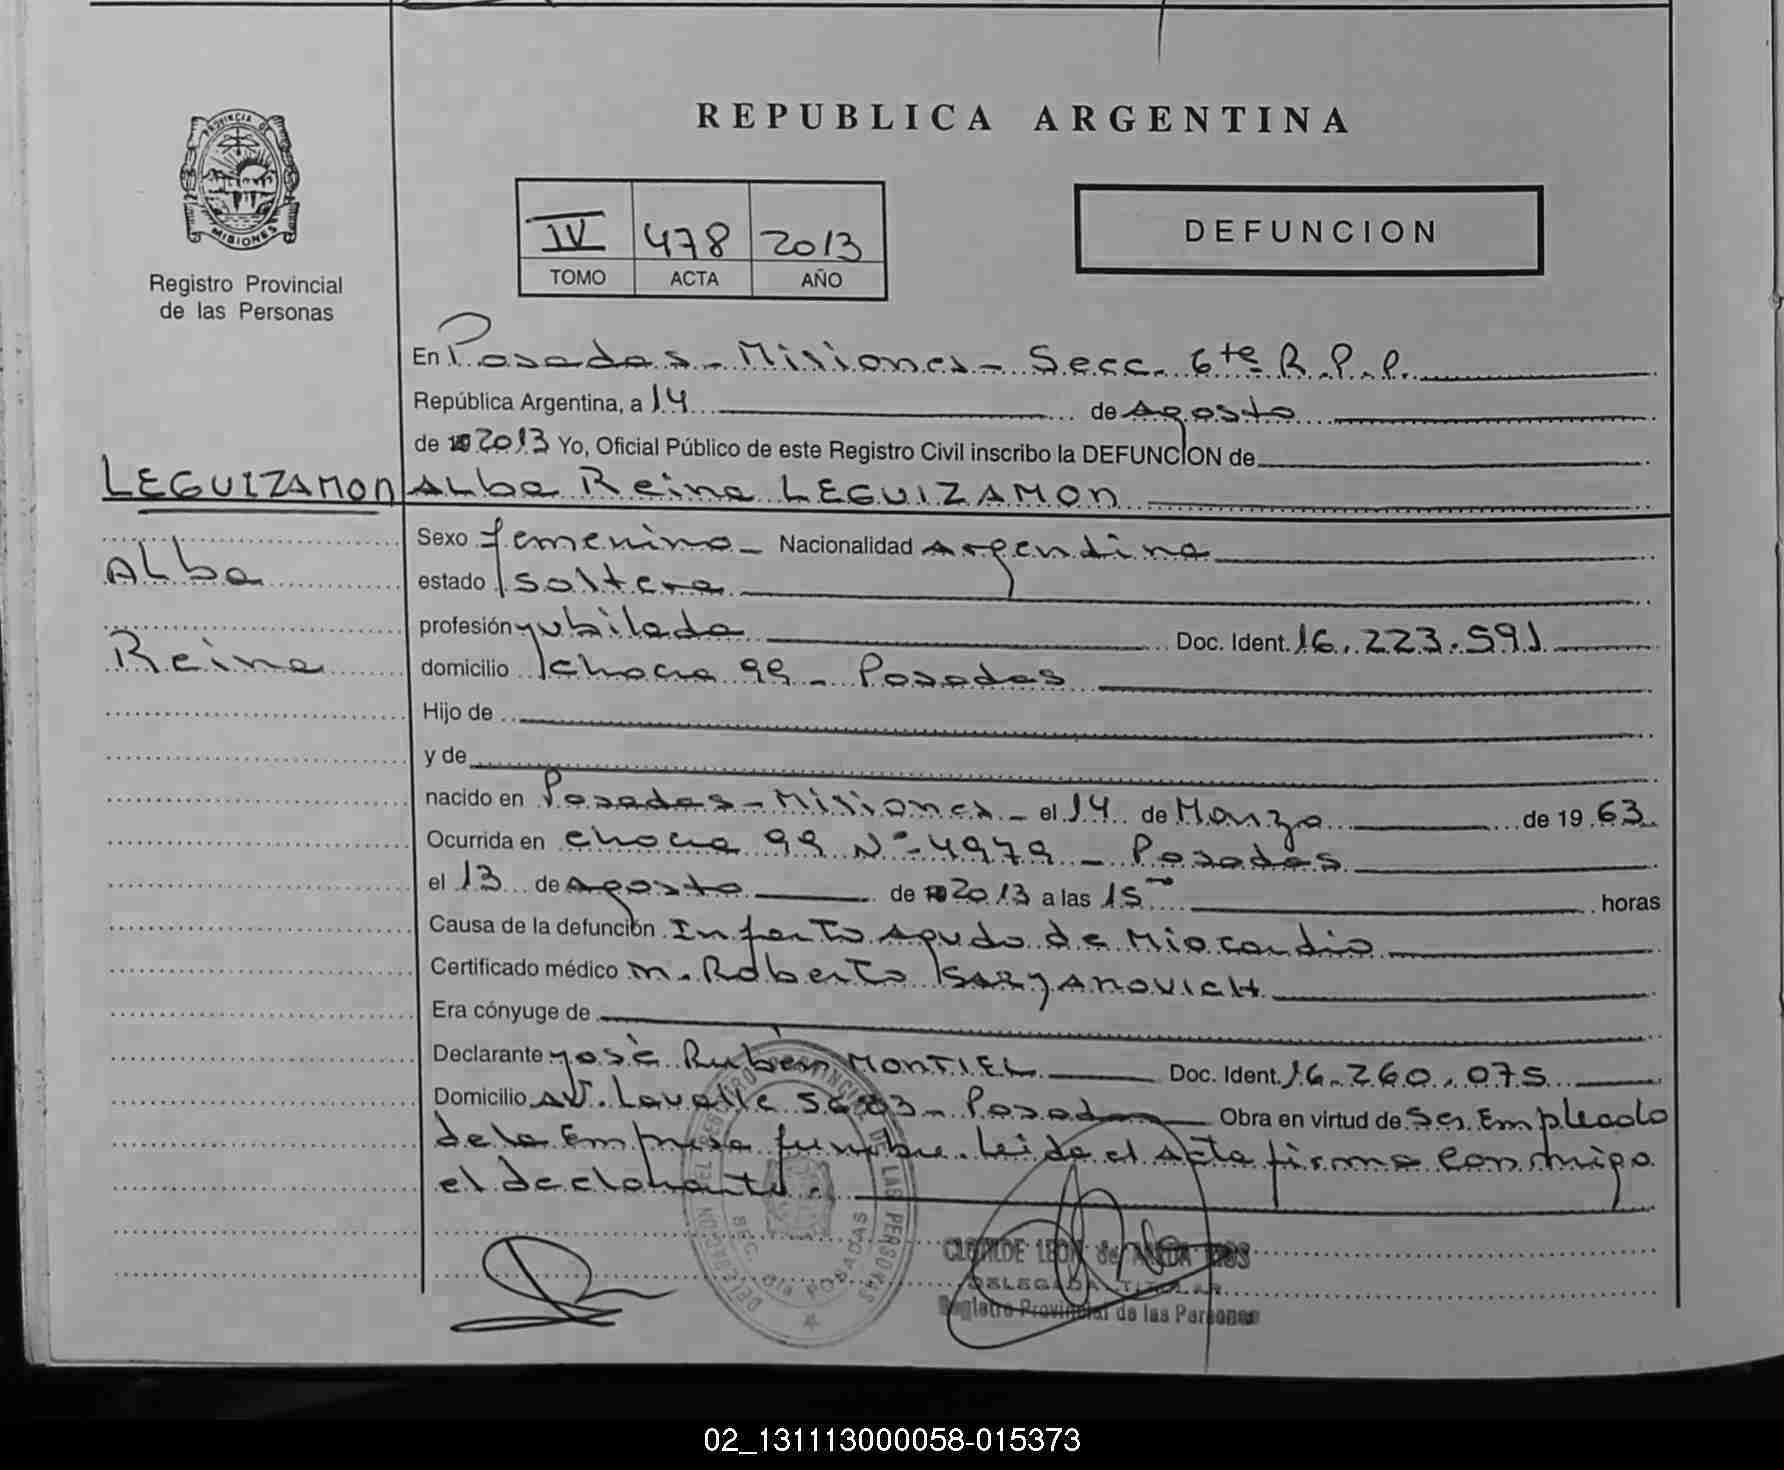 REPUBLICA ARGENTINA
PROVINCIA DE
MISIONES
Registro Provincial
de las Personas
IV 478 2013
TOMO ACTA AÑO
DEFUNCION
En Posadas - Misiones - Secc. 6ta R.P.P.
República Argentina, a 14 de Agosto
de 2013 Yo, Oficial Público de este Registro Civil inscribo la DEFUNCION de
LEGUIZAMON
Alba
Reina
Alba Reina LEGUIZAMON
Sexo femenino - Nacionalidad Argentina
estado soltera
profesión jubilada Doc. Ident. 16.223.591
domicilio chacra 99 - Posadas
Hijo de
y de
nacido en Posadas - Misiones - el 14 de Marzo de 1963
Ocurrida en chacra 99 Nº 4979 - Posadas
el 13 de Agosto de 2013 a las 15 horas
Causa de la defunción Infarto Agudo de Miocardio
Certificado médico M. Roberto
Era cónyuge de
Declarante José Rubén MONTIEL Doc. Ident. 16.260.075
Domicilio Av. Lavalle Posadas Obra en virtud de Ser Empleado
de la Empresa fúnebre. Leida el Acta firma conmigo
el declarante.
SEC. 6ta POSADAS
DELEGADA TITULAR
Registro Provincial de las Personas
02_131113000058-015373